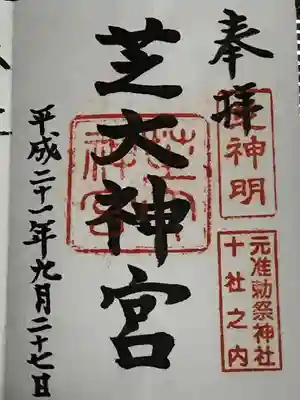 奉拝
神明
元准勅祭神社
十社之内
芝大神宮
平成二十一年九月二十七日